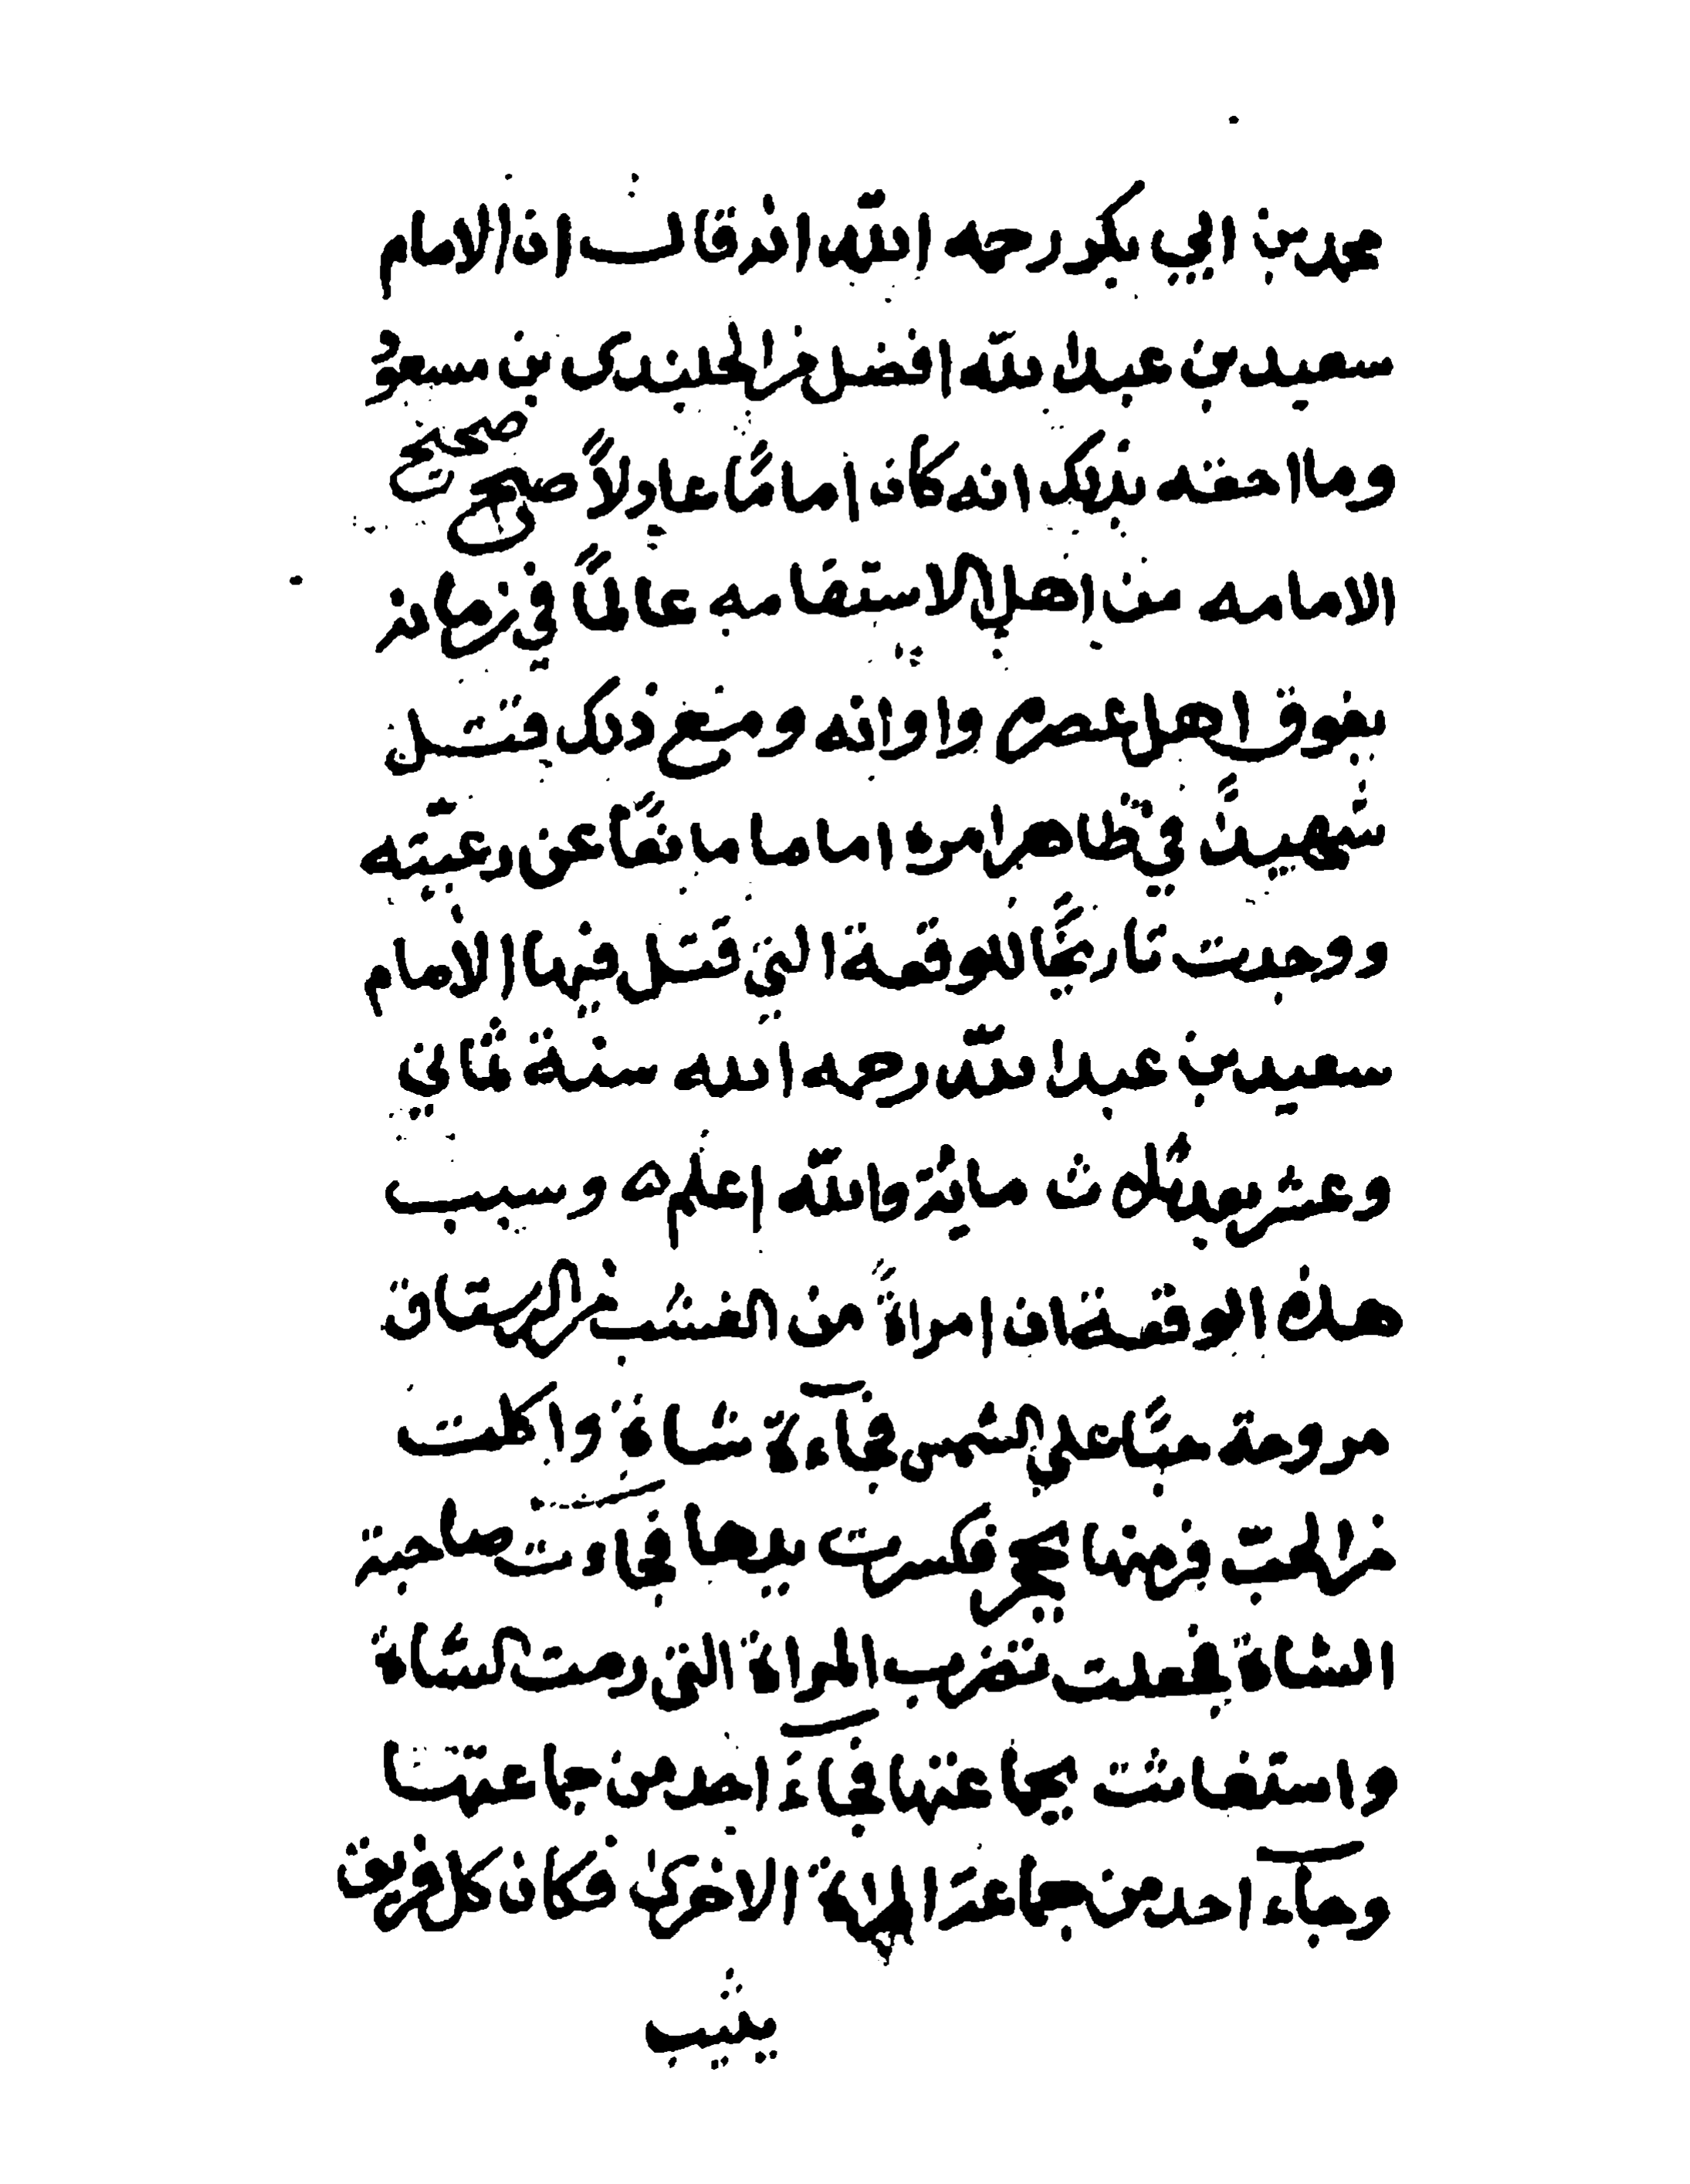 محمد بن ابي بكر رحمه الله انه قال ان الامام
سعيد بن عبد الله افضل من الجلندى بن مسعو
وما احقه بذلك انه كان اماما عادلاً صحيح صحيح
الامامه من اهل الاستقامه عالماً في زمانه
يفوق اهل عصره واوانه ومع ذلك قتل
شهيداً في ظاهر امره اماما
عن رعيته
ووجدت تاريخاً للوقعة التي قتل فيها الامام
سعيد بن عبد الله رحمه الله سنة ثماني
وعشرين وثلاث مائة والله اعلم ه وسبب
هذه الوقعة ان امراةً من الغشب من الرستاق
مروحة حبّا على الشمس فجآءة شاة واكلت
من الحبّ فرمتها بحجر فكسرت يدها فجاءت صاحبة
الشاة فجعلت تضرب المراة التي رمت الشاة
واستغاثت بجماعتها فجآء احد من جماعتها
وجآء احد من جماعة المراة الاخرى فكان كل فريق
يثيب